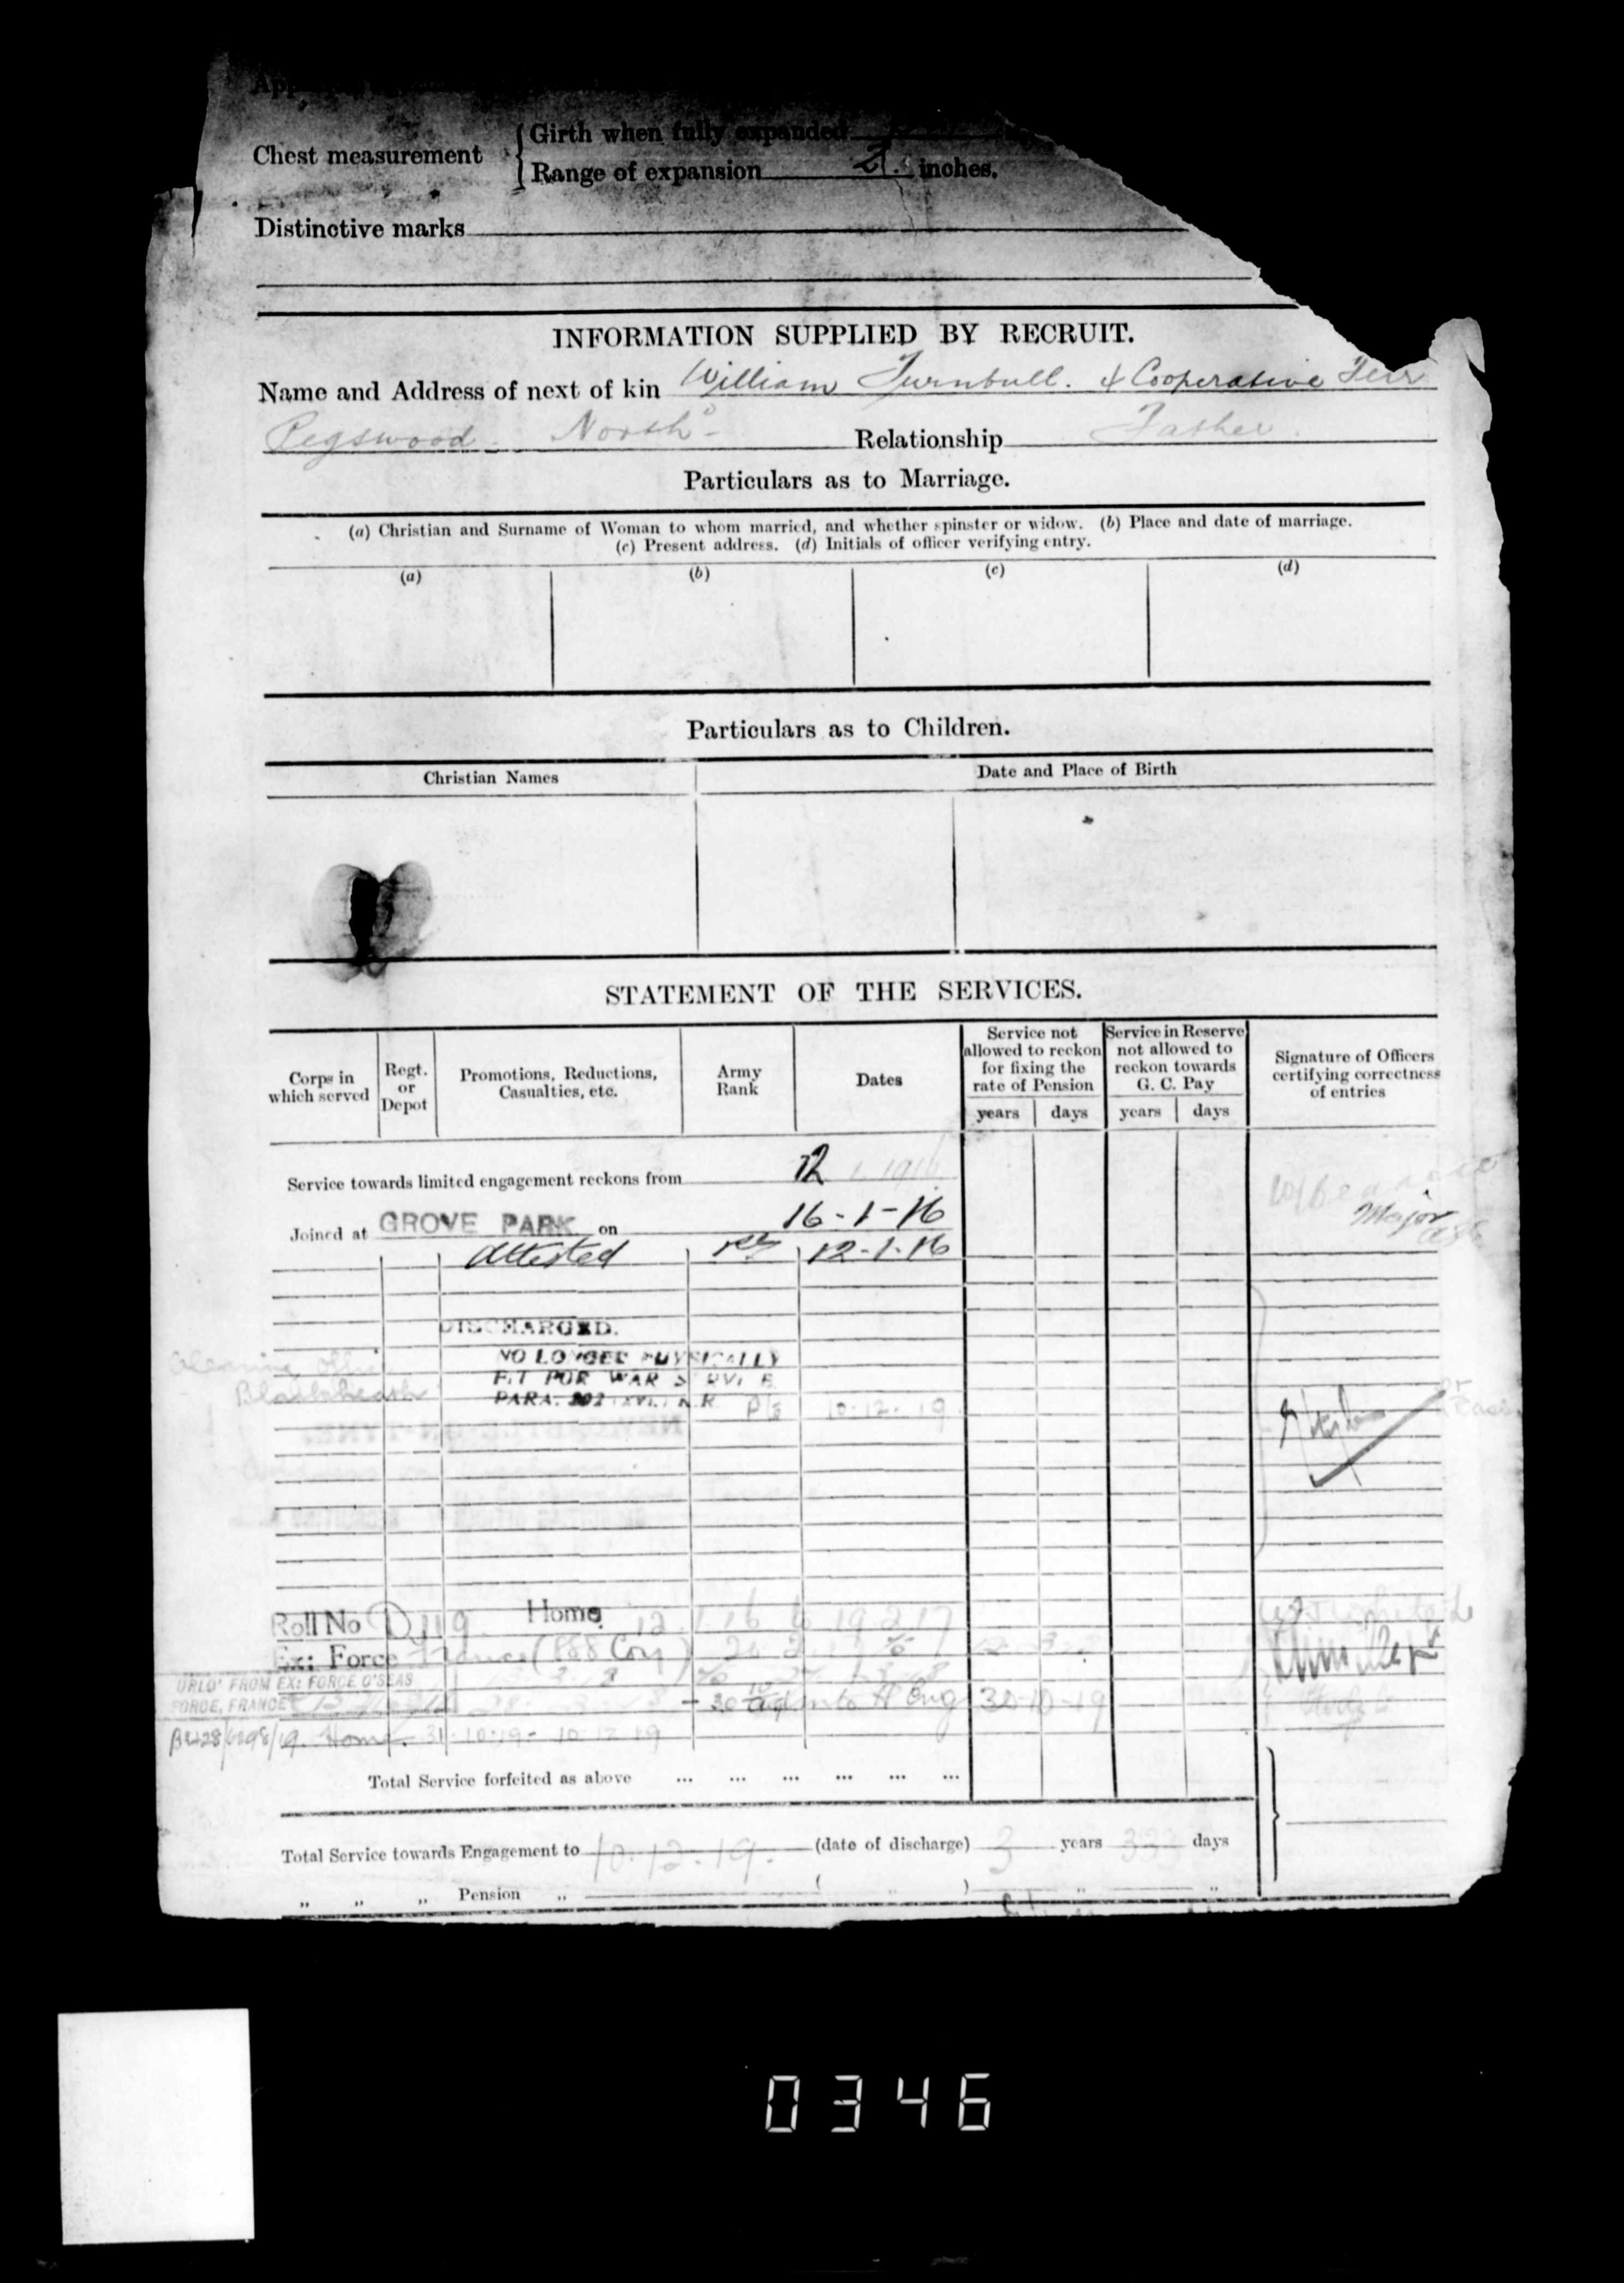 Chest measurement
Girth when fully expanded
Range of expansion 2 inches.
Distinctive marks
INFORMATION SUPPLIED BY RECRUIT.
Name and Address of next of kin William Turnbull. 4 Cooperative Terr
Pegswood Northd Relationship Father
Particulars as to Marriage.
(a) Christian and Surname of Woman to whom married, and whether spinster or widow. (b) Place and date of marriage.
(c) Present address. (d) Initials of officer verifying entry.
(a) (b) (c) (d)
Particulars as to Children.
Christian Names Date and Place of Birth
STATEMENT OF THE SERVICES.
Corps in which served
Regt. or Depot
Promotions, Reductions, Casualties, etc.
Army Rank
Dates
Service not allowed to reckon for fixing the rate of Pension
years days
Service in Reserve not allowed to reckon towards G. C. Pay
years days
Signature of Officers certifying correctness of entries
Service towards limited engagement reckons from 12 1 1916
Joined at GROVE PARK on 16-1-16
Major
Attested 12-1-16
DISCHARGED.
NO LONGER PHYSICALLY
FIT FOR WAR SERVICE
PARA. 392 XVI. K.R. 10.12.19
Blackheath
Roll No D119. Home 12 1 16 to 19 2 17
Ex: Force France (888 Coy) 20 2 17
FROM EX: FORCE O'SEAS
FORCE, FRANCE
30 10 19
Home. 31.10.19 - 10.12.19
Total Service forfeited as above ... ... ... ... ... ...
Total Service towards Engagement to 10.12.19. (date of discharge) 3 years 333 days
„ „ „ Pension „ ( „ ) „ „
0346